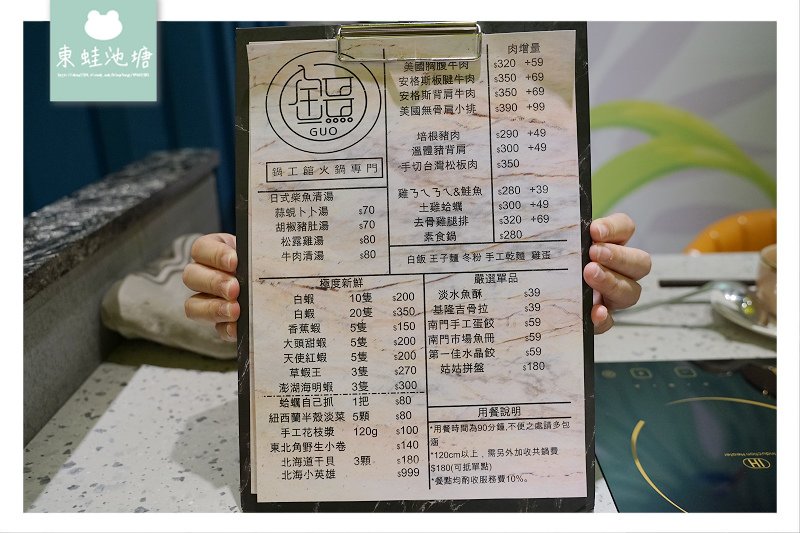 東蛙池塘
GUO
鍋工館火鍋專門
日式柴魚清湯
蒜蜆卜卜湯 $70
胡椒豬肚湯 $70
松露雞湯 $80
牛肉清湯 $80
肉增量
美國胸腹牛肉 $320 +59
安格斯板腱牛肉 $350 +69
安格斯背肩牛肉 $350 +69
美國無骨肩小排 $390 +99
培根豬肉 $290 +49
溫體豬背肩 $300 +49
手切台灣松板肉 $350
雞ㄋㄟㄋㄟ&鮭魚 $280 +39
土雞蛤蠣 $300 +49
去骨雞腿排 $320 +69
素食鍋 $280
白飯 王子麵 冬粉 手工乾麵 雞蛋
極度新鮮
白蝦 10隻 $200
白蝦 20隻 $350
香蕉蝦 5隻 $150
大頭甜蝦 5隻 $200
天使紅蝦 5隻 $200
草蝦王 3隻 $270
澎湖海明蝦 3隻 $300
蛤蠣自己抓 1把 $80
紐西蘭半殼淡菜 5顆 $80
手工花枝漿 120g $100
東北角野生小卷 $140
北海道干貝 3顆 $180
北海小英雄 $999
嚴選單品
淡水魚酥 $39
基隆吉骨拉 $39
南門手工蛋餃 $59
南門市場魚冊 $59
第一佳水晶餃 $59
姑姑拼盤 $180
用餐說明
*用餐時間為90分鐘,不便之處請多包
涵
*120cm以上，需另外加收共鍋費
$180(可抵單點)
*餐點均酌收服務費10%。